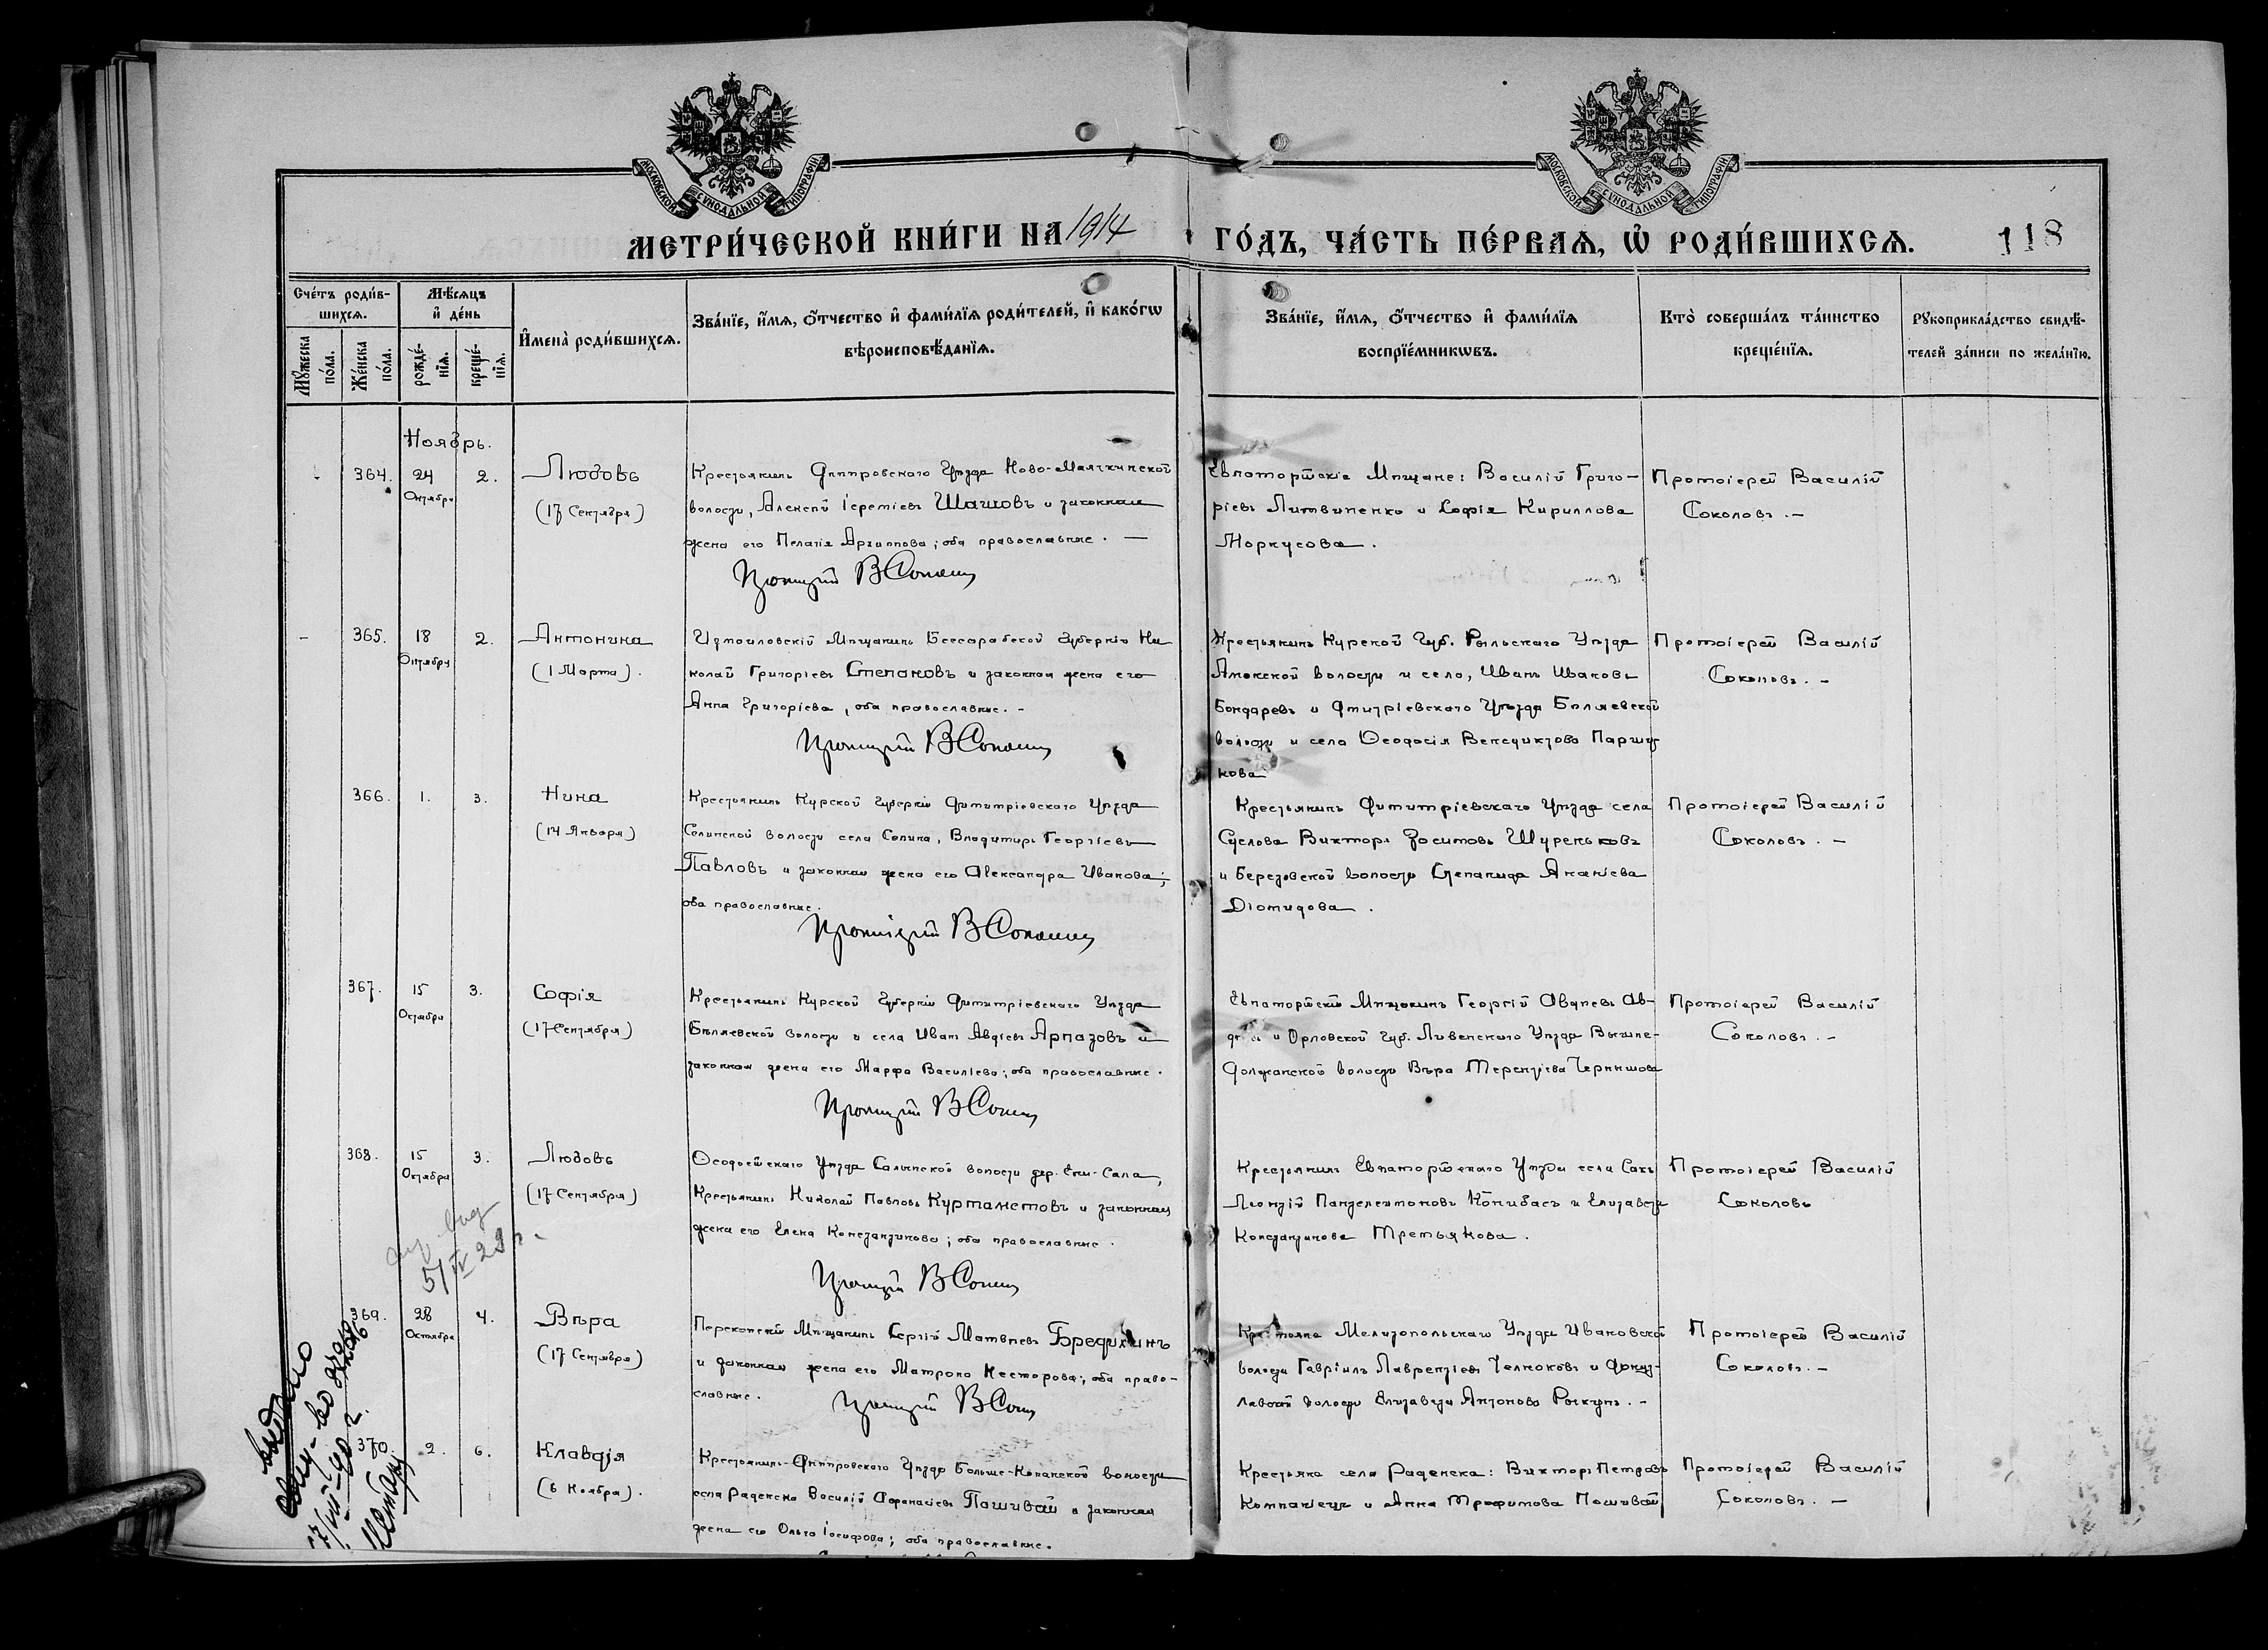 МОСКОВСКОЙ СѴНОДАЛЬНОЙ ТИПОГРАФІИ
МОСКОВСКОЙ СѴНОДАЛЬНОЙ ТИПОГРАФІИ
МЕТРИ́ЧЕСКОЙ КНИ́ГИ НА 1914 ГО́ДЪ, ЧА́СТЬ ПЕ́РВАѦ, Ѡ҆ РОДИ́ВШИХСѦ. 118
Сче́тъ роди́в-
шихсѧ.
Мѣ́сѧцъ
и҆ де́нь
Му́жеска
по́ла.
Же́нска
по́ла.
рожде́-
нїѧ.
креще́-
нїѧ.
И҆мена̀ роди́вшихсѧ.
Зва́нїе, и҆́мѧ, ѻ҆́тчество и҆ фами́лїѧ роди́телей, и҆ како́гѡ
вѣроисповѣ́данїѧ.
Зва́нїе, и҆́мѧ, ѻ҆́тчество и҆ фами́лїѧ
воспрїе́мникѡвъ.
Кто̀ соверша́лъ та́инство
креще́нїѧ.
Рꙋкоприкла́дство свидѣ́-
телей за́писи по жела́нїю.
Ноябрь.
364. 24 2. Любовь
Октября
(17 Сентября)
Крестьянинъ Днѣпровскаго Уѣзда Ново-Маячкинской
волости, Алексѣй Іереміевъ Шашовъ и законная
жена его Пелагія Архиппова; оба православные. —
Протоіерей В Соколовъ
Евпаторійскіе Мѣщане: Василій Григо-
ріевъ Литвиненко и Софія Кириллова
Моркусова.
Протоіерей Василій
Соколовъ. —
365. 18 2. Антонина
Октября
(1 Марта).
Измаиловскій Мѣщанинъ Бессарабской Губерніи Ни
колай Григоріевъ Степановъ и законная жена его
Анна Григоріева, оба православные. -
Протоіерей В Соколовъ
Крестьянинъ Курской Губ. Рыльскаго Уѣзда
волости и села, Иванъ Ивановъ
Бондаревъ и Дмитріевскаго Уѣзда Бѣляевской
волости и села Ѳеодосія Венедиктова Паршу
кова
Протоіерей Василій
Соколовъ. -
366. 1. 3. Нина
(14 Января)
Крестьянинъ Курской Губерніи Димитріевскаго Уѣзда
Селинской волости села Селина, Владимиръ Георгіевъ
Павловъ и законная жена его Александра Иванова;
оба православные.
Протоіерей В Соколовъ
Крестьянинъ Димитріевскаго Уѣзда села
Суслова Викторъ Зосимовъ Шуреньковъ
и Березовской волости Степанида Ананіева
Діомидова.
Протоіерей Василій
Соколовъ. —
367. 15 3. Софія
Октября
(17 Сентября)
Крестьянинъ Курской Губерніи Димитріевскаго Уѣзда
Бѣляевской волости и села Иванъ Авдіевъ Арпазовъ и
законная жена его Марфа Василіева; оба православные.
Протоіерей В Соколовъ
Евпаторійскій Мѣщанинъ Георгій Авдѣевъ Ав-
и Орловской Губ. Ливенскаго Уѣзда Вышне-
Должанской волости Вѣра Терентіева Чернышова
Протоіерей Василій
Соколовъ. -
368. 15 3. Любовь
Октября
(17 Сентября)
Ѳеодосійскаго Уѣзда Салынской волости дер. Ени-Сала,
Крестьянинъ Николай Павловъ Курталистовъ и законная
жена его Елена Константинова; оба православные.
Протоіерей В Соколовъ
Крестьянинъ Евпаторійскаго Уѣзда села Сакъ
Леонтій Пантелеимоновъ Копибасъ и Елизавета
Константинова Третьякова.
Протоіерей Василій
Соколовъ
5/IV 29 г.
369. 28 4. Вѣра
Октября
(17 Сентября)
Перекопскій Мѣщанинъ Сергій Матвѣевъ Бредихинъ
и законная жена его Матрона Несторова; оба право-
славные. Протоіерей В Соколовъ
Крестьяне Мелитопольскаго Уѣзда Ивановской
волости Гавріилъ Лаврентіевъ Челноковъ и
волости Елизавета Антонова Раскунъ. -
Протоіерей Василій
Соколовъ. —
370. 2. 6. Клавдія
(6 Ноября).
Крестьянинъ Днѣпровскаго Уѣзда Больше-Копанской волости
села Раденска Василій Аѳанасіевъ Пашивай и законная
жена его Ольга Іосифова; оба православные.
Крестьяне села Раденска: Викторъ Петровъ
Компаніецъ и Анна Трофимова Пошивай
Протоіерей Василій
Соколовъ. —
выдано